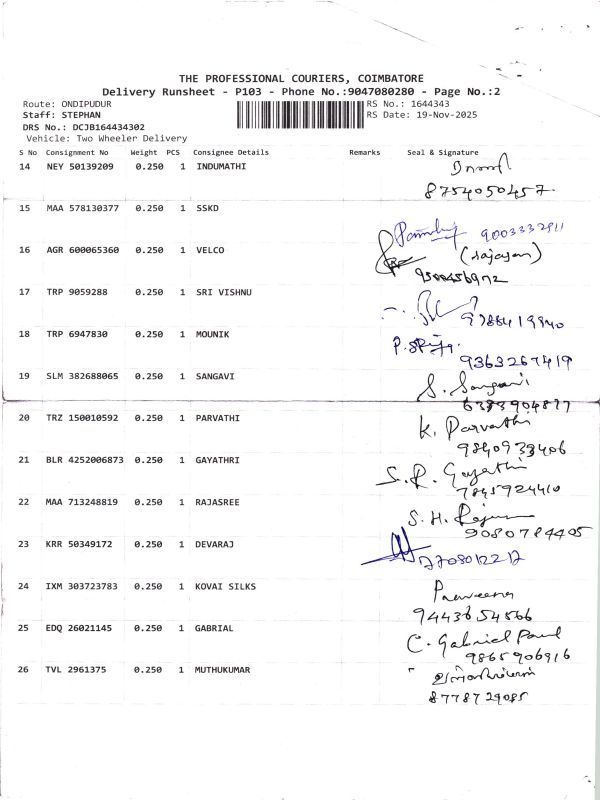 THE PROFESSIONAL COURIERS, COIMBATORE
Delivery Runsheet - P103 - Phone No.:9047080280 - Page No.:2
Route: ONDIPUDUR RS No.: 1644343
Staff: STEPHAN RS Date: 19-Nov-2025
DRS No.: DCJB164434302
Vehicle: Two Wheeler Delivery
S No Consignment No Weight PCS Consignee Details Remarks Seal & Signature
14 NEY 50139209 0.250 1 INDUMATHI
8754050457
15 MAA 578130377 0.250 1 SSKD
9003332911
16 AGR 600065360 0.250 1 VELCO (rajasan)
9500456972
17 TRP 9059288 0.250 1 SRI VISHNU
9788419940
18 TRP 6947830 0.250 1 MOUNIK
9363267419
19 SLM 382688065 0.250 1 SANGAVI S. Sangavi
6383904877
20 TRZ 150010592 0.250 1 PARVATHI K. Parvathi
9840933406
21 BLR 4252006873 0.250 1 GAYATHRI S.R. Gayathri
7845924410
22 MAA 713248819 0.250 1 RAJASREE S.H.
9080784405
23 KRR 50349172 0.250 1 DEVARAJ
24 IXM 303723783 0.250 1 KOVAI SILKS Praveena
9443654566
25 EDQ 26021145 0.250 1 GABRIAL C. Gabriel Paul
9865906916
26 TVL 2961375 0.250 1 MUTHUKUMAR
8778729085